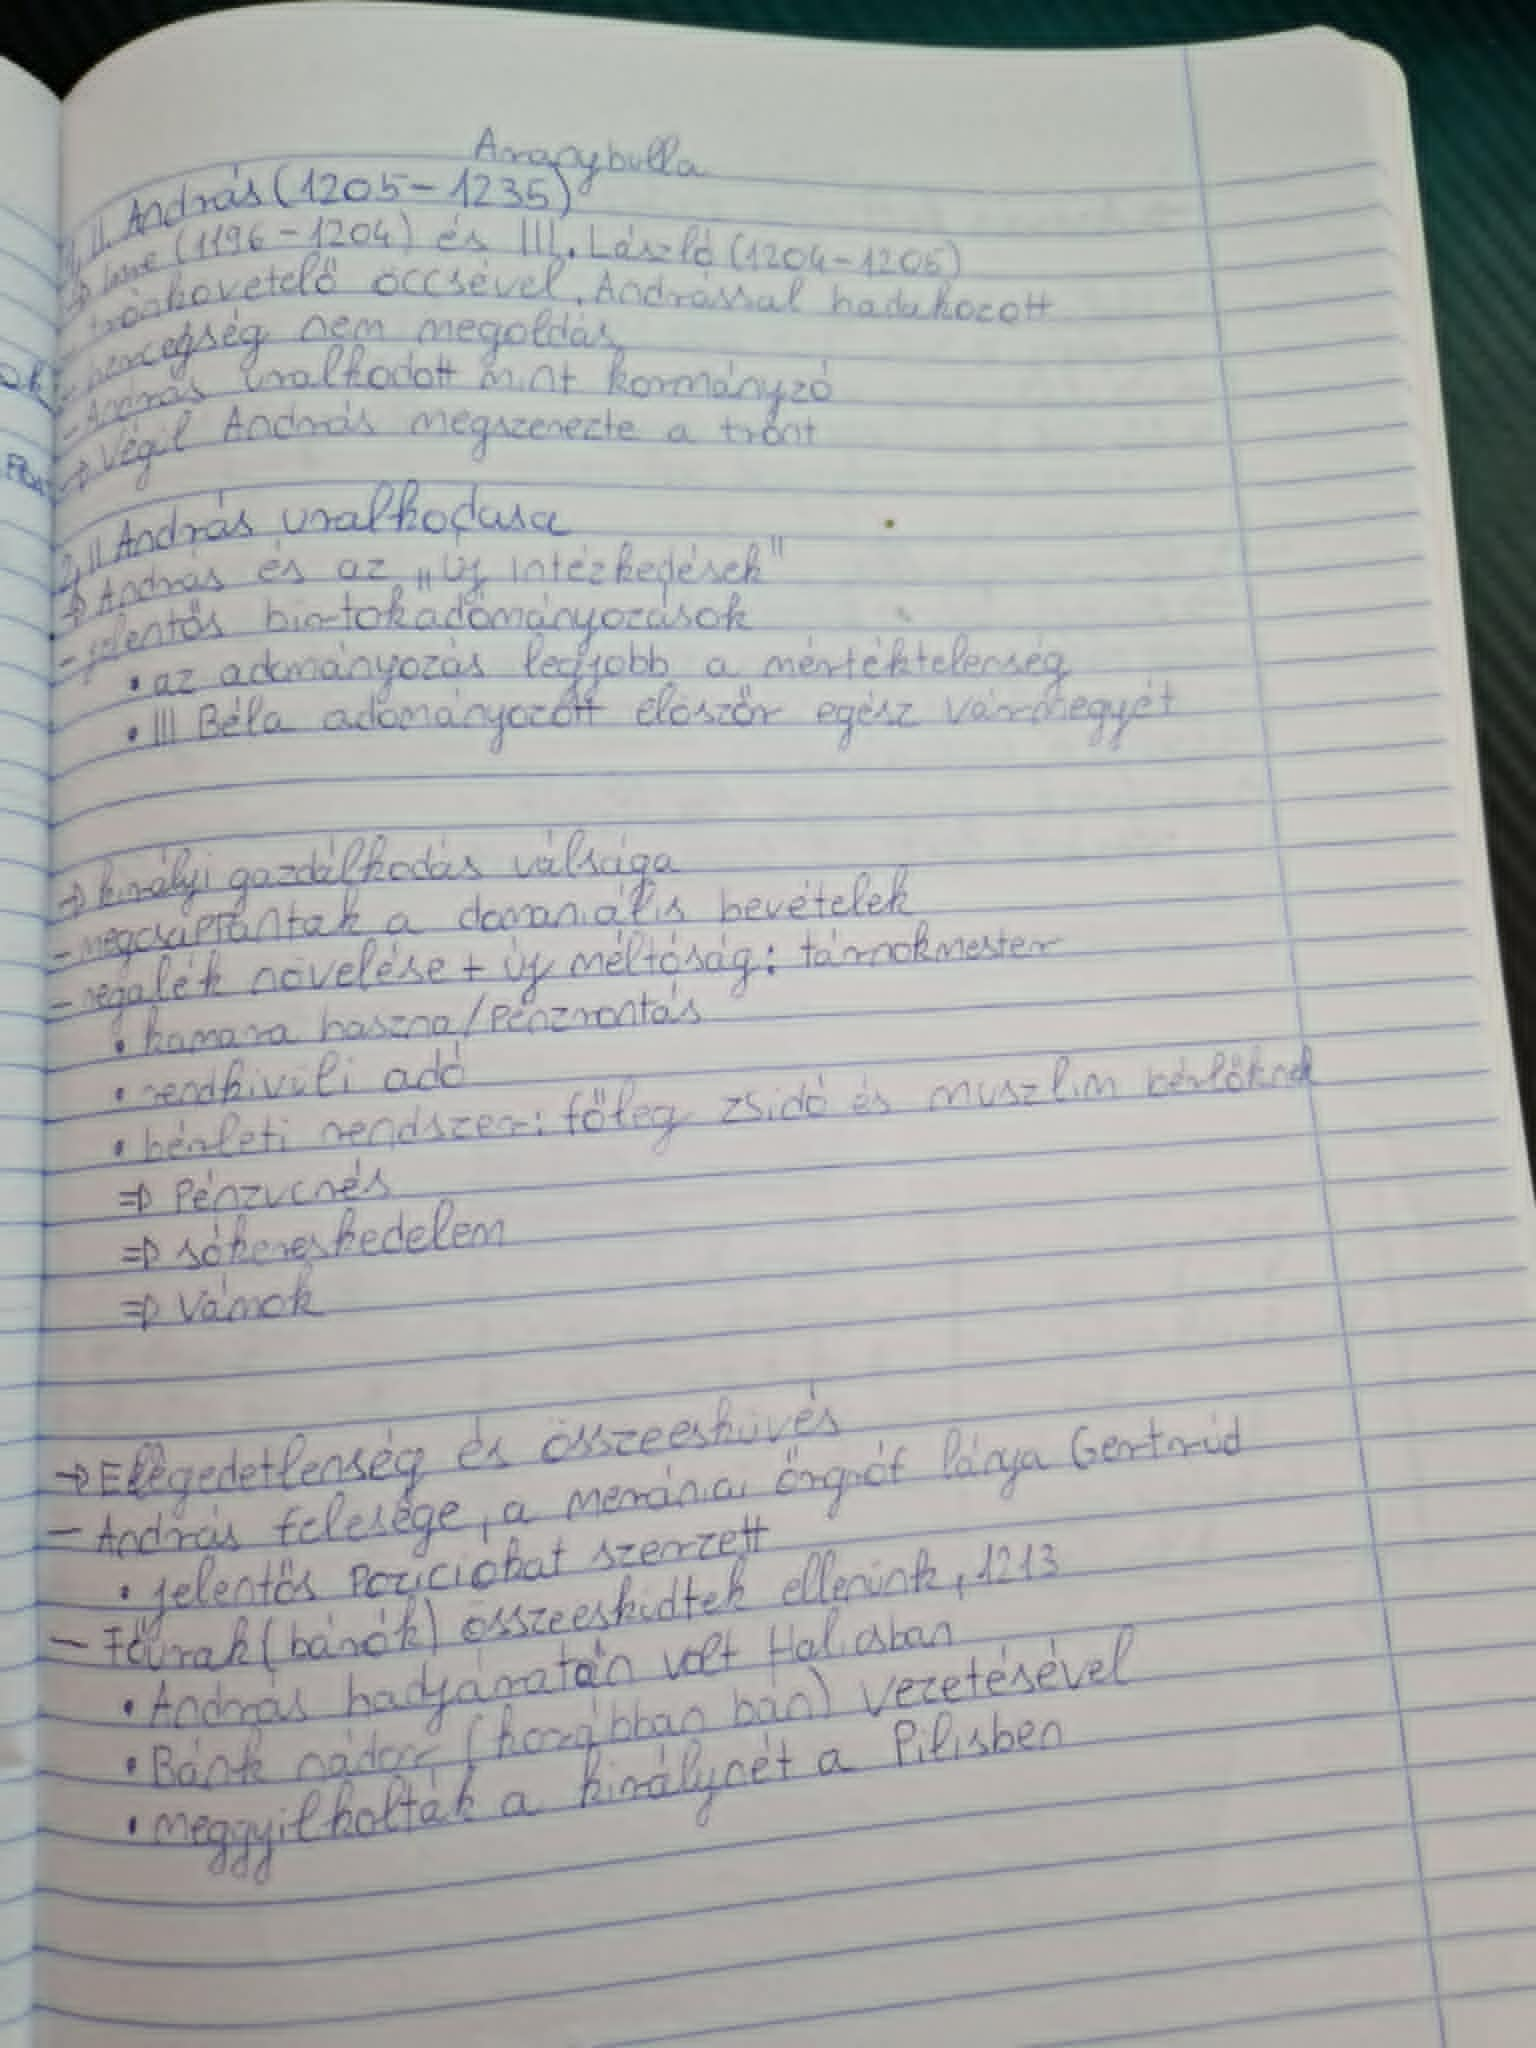 Aranybulla
1, II. András (1205-1235)
→ Imre (1196-1204) és III. László (1204-1205)
- trónkovetelő öccsével, Andrással hadakozott
- hercegség nem megoldás
- András uralkodott mint kormányzó
→ Végül András megszerezte a trónt
2, II András uralkodása
→ András és az „új intézkedések"
- jelentős birtokadományozások
• az adományozás legjobb a mértéktelenség
• III Béla adományozott először egész vármegyét
→ királyi gazdálkodás válsága
- megcsappantak a domaniális bevételek
- regálék növelése + új méltóság: tárnokmester
• kamara haszna/Pénzrontás
• rendkivüli adó
• bérleti rendszer: főleg zsidó és muszlim bérlőknek
⇒ Pénzverés
⇒ sókereskedelem
⇒ Vámok
→ Elégedetlenség és összeesküvés
- András felesége, a merániai őrgróf lánya Gertrúd
• jelentős Poziciokat szerzett
- Főurak (bárók) összeesküdtek ellenünk, 1213
• András hadjáratán volt Halicsban
• Bánk nádor (korábban bán) vezetésével
• meggyilkolták a királynét a Pilisben